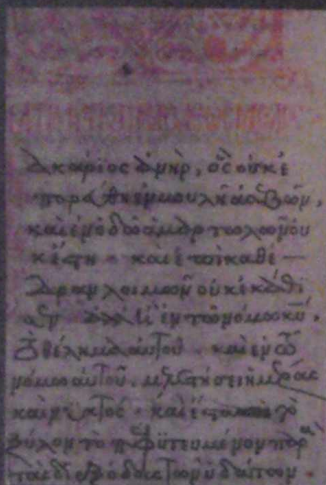 ακάριος ἀνήρ, ὃς οὐκ ἐ
πορεύθη ἐν βουλῇ ἀσεβῶν,
καὶ ἐν ὁδῷ ἁμαρτωλῶν οὐ
κ ἔστη · καὶ ἐπὶ καθέ
δραν λοιμῶν οὐκ ἐκάθι
σεν ἀλλ' ἢ ἐν τῷ νόμῳ κυ,
τὸ θέλημα αὐτοῦ · καὶ ἐν τῷ
νόμῳ αὐτοῦ μελετήσει ἡμέρας
καὶ νυκτός · καὶ ἔσται ὡς τὸ
ξύλον τὸ πεφυτευμένον παρὰ
τὰς διεξόδους τῶν ὑδάτων ·